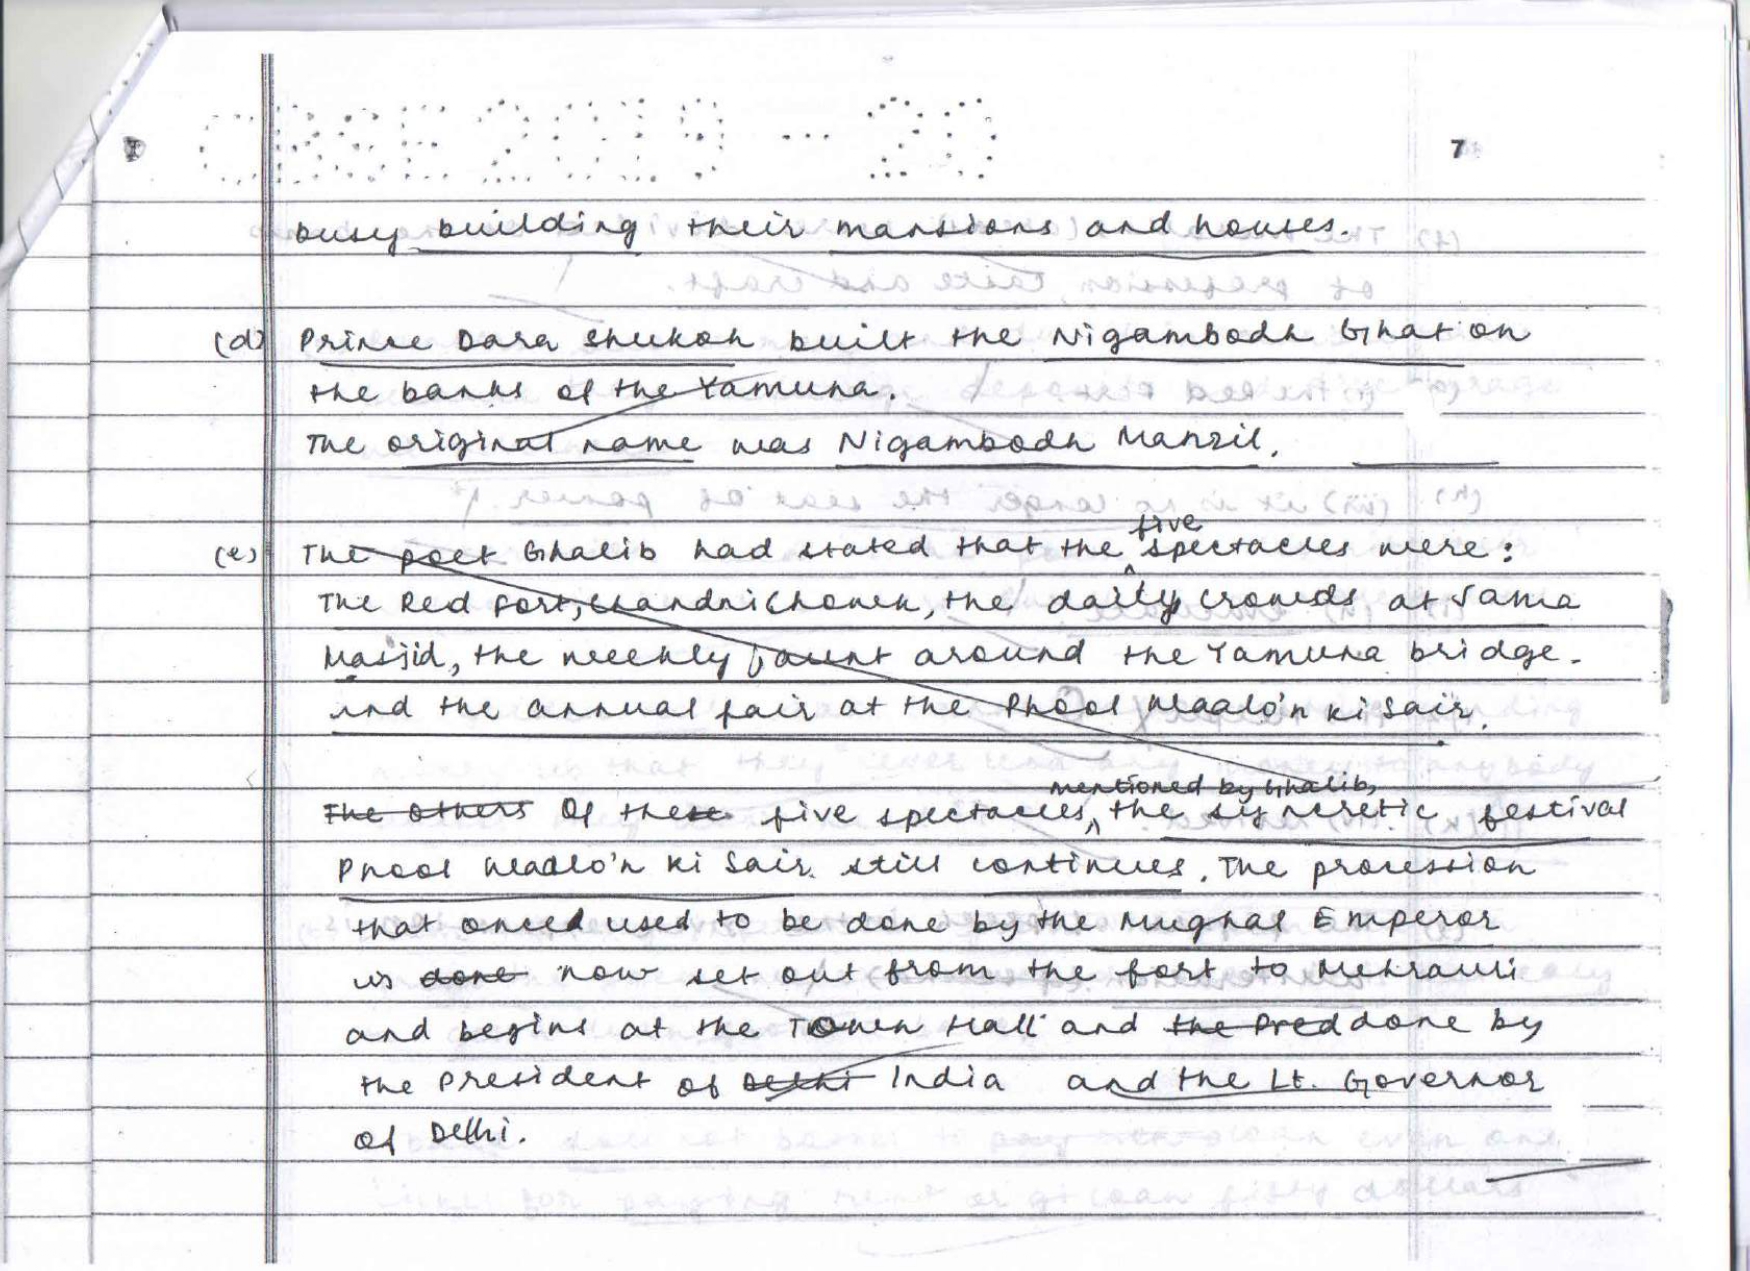 CBSE 2019 - 20
7
busy building their mansions and houses.
(d) Prince Dara Shukoh built the Nigambodh Ghat on
the banks of the Yamuna.
The original name was Nigambodh Manzil.
(e) The poet Ghalib had stated that the five spectacles were:
The Red Fort, Chandni Chowk, the daily crowds at Jama
Masjid, the weekly jaunt around the Yamuna bridge.
and the annual fair at the Phool Waalo'n ki Sair.
The others Of these five spectacles mentioned by Ghalib, the syncretic festival
Phool Waalo'n ki Sair still continues. The procession
that once used to be done by the Mughal Emperor
is done now set out from the fort to Mehrauli
and begins at the Town Hall and the Pred done by
the President of Delhi India and the Lt. Governor
of Delhi.